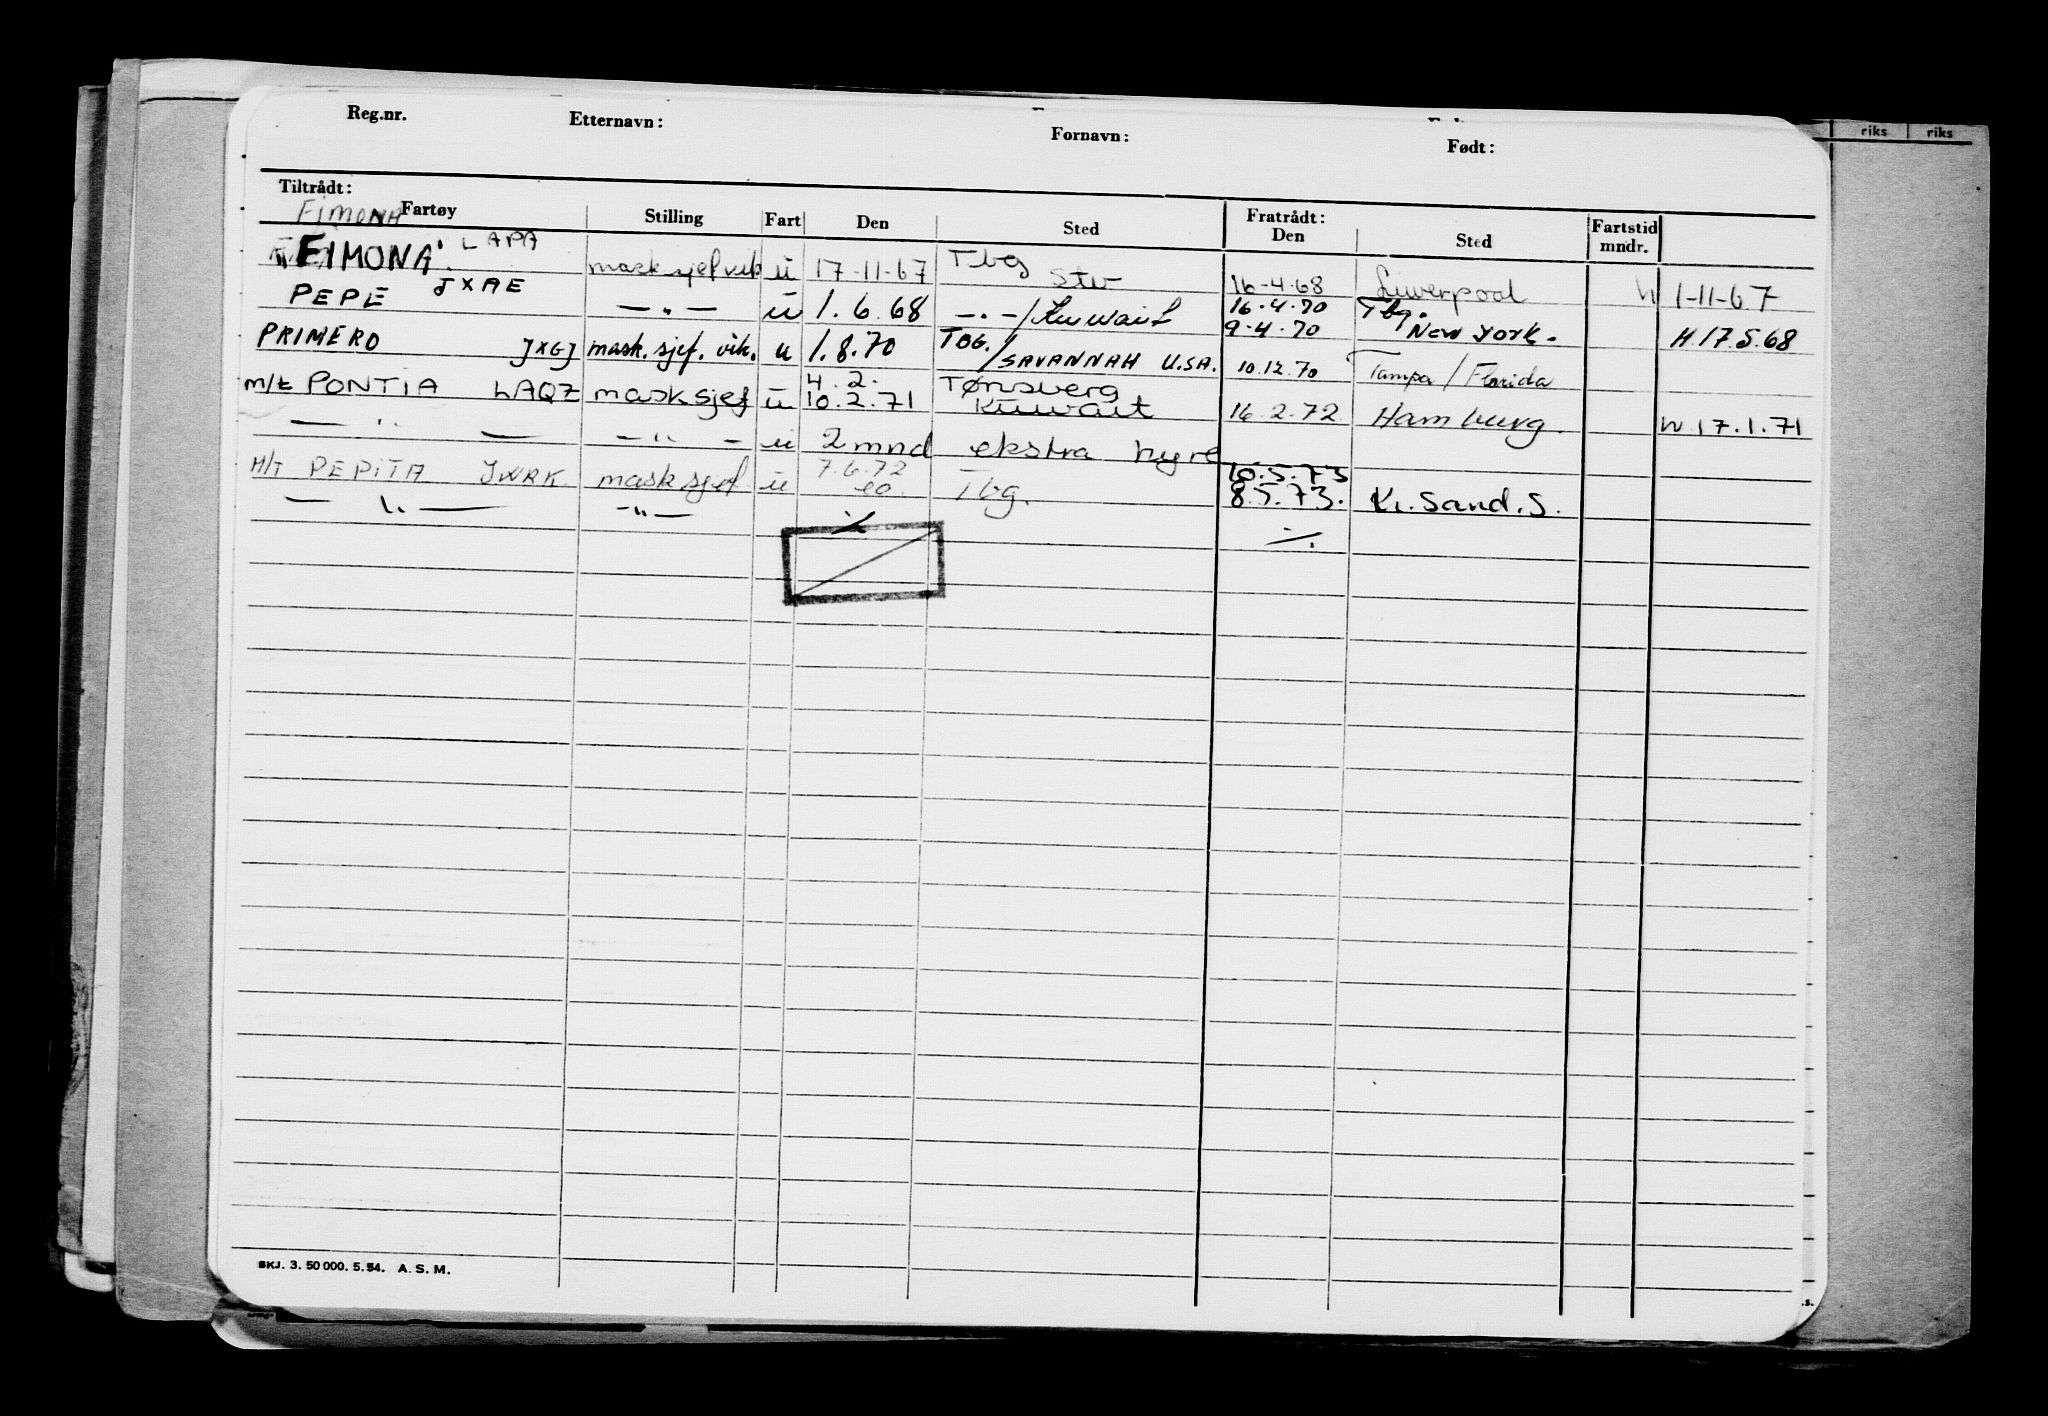 Reg.nr. Etternavn: Fornavn: Født:
Tiltrådt: Fratrådt:
Fimona
Fartøy Stilling Fart Den Sted Den Sted Fartstid mndr.
riks riks
FIMONA LAPA mask sjef vik ü 17-11-67 Tbg Stv 16-4-68 Liverpool 1-11-67
PEPE JXAE — " — ü 1.6.68 — " —/Kuwait 16.4.70 Tbg.
9-4-70 New York. H 17.5.68
PRIMERO JXGJ mask. sjef. vik. u 1.8.70 TBG./SAVANNAH U.SA. 10.12.70 Tampa / Florida
4.2. Tønsberg
m/t PONTIA LAQZ mask sjef ü 10.2.71 Kuwait 16.2.72 Hamburg. 17.1.71
— " — — " — ü 2 mnd ekstra hyre
7.6.72 10.5.73
M/T PEPITA JWRK mask sjef ü eo. Tbg. 8.5.73. Kr. Sand. S.
— " — — " — ./. ./.
SKJ. 3. 50 000. 5. 54. A. S. M.